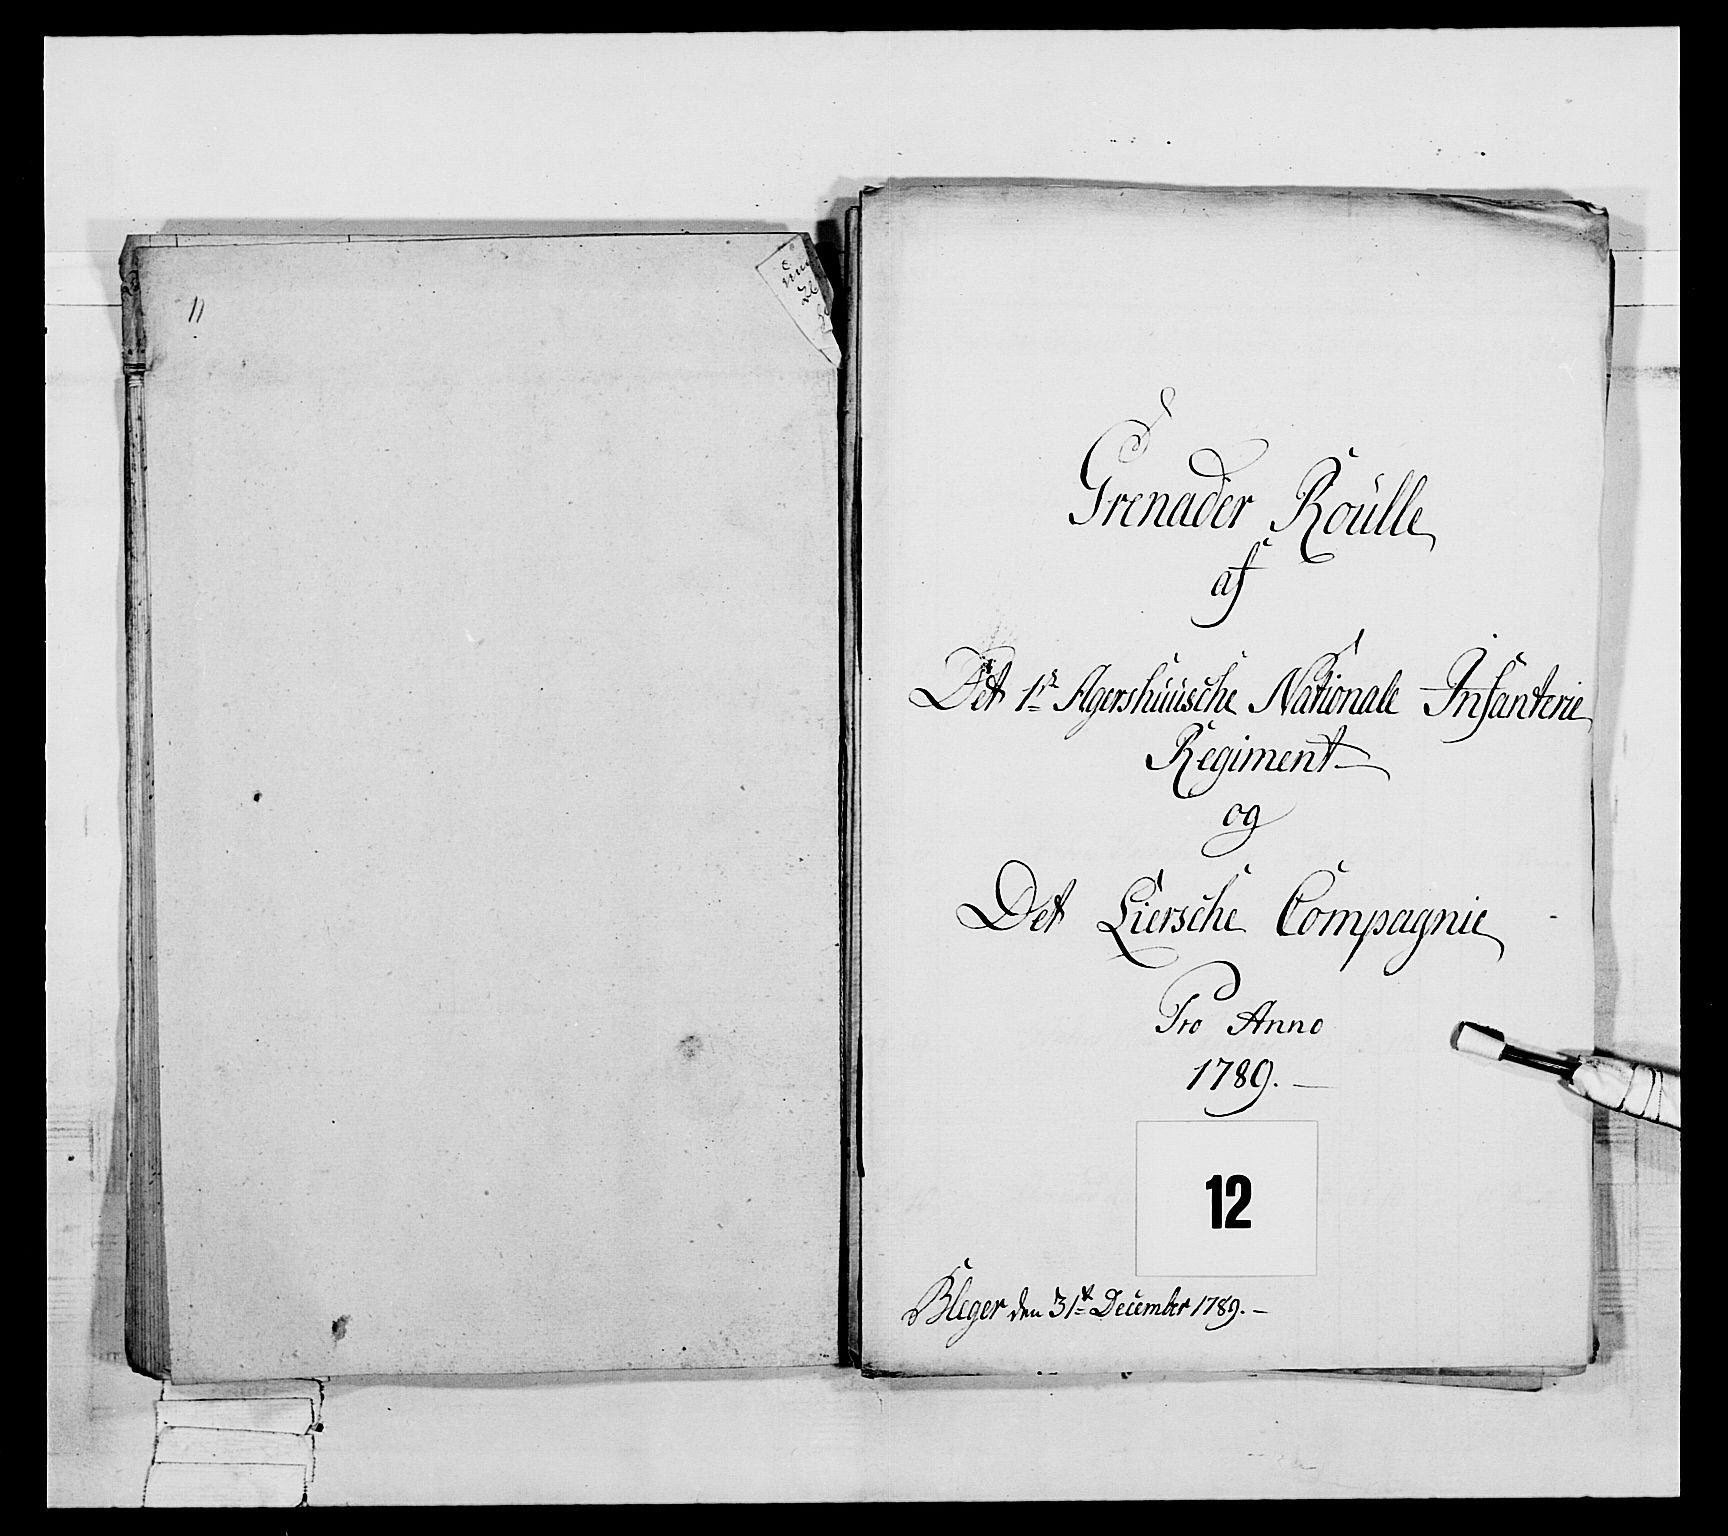 11
Grenader Roülle
af
Det 1te Agershuusche Nationale Infanterie
Regiment
og
Det Liersche Compagnie
Pro Anno
1789.
12
Bleger den 31te December 1789.